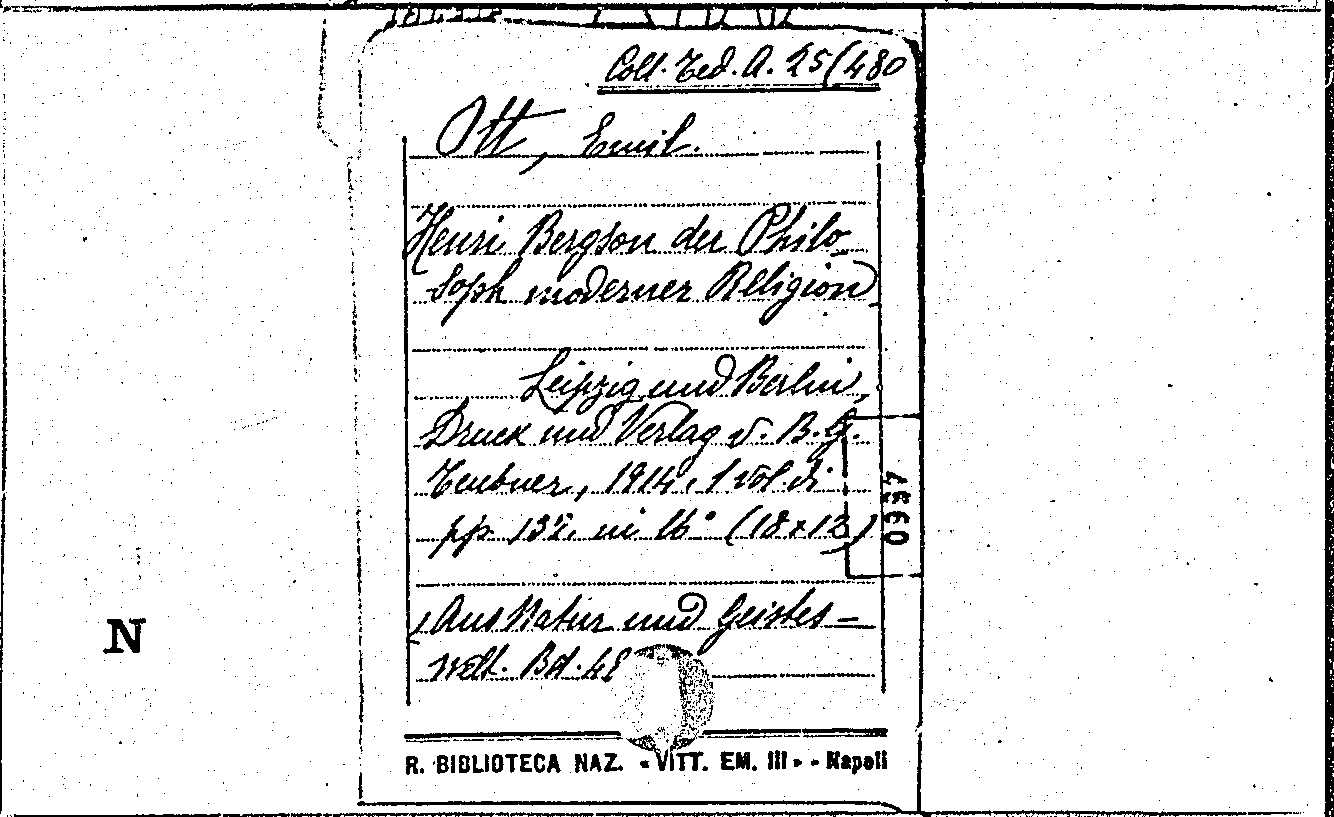 Coll. Ted. A. 25(480
Ott, Emil.
Henri Bergson der Philo
soph moderner Religion
Leipzig und Berlin,
Druck und Verlag v. B. G.
Teubner, 1914. 1 vol. di
pp. in 16° (18x12)
Aus Natur und Geistes-
welt. Bd. 48
0997
N
R. BIBLIOTECA NAZ. «VITT. EM. III» - Napoli